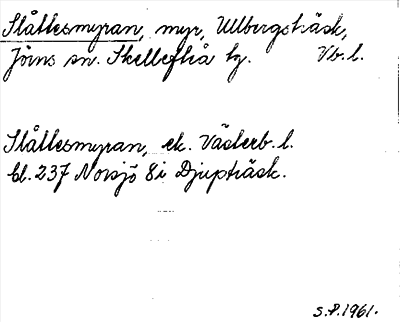 Slåttesmyran, myr, Ullbergsträsk,
Jörns sn. Skellefteå tg. Vb. l.
Slåttesmyran, ek. Västerb. l.
bl. 237 Norsjö 8i Djupträsk.
S.P. 1961.